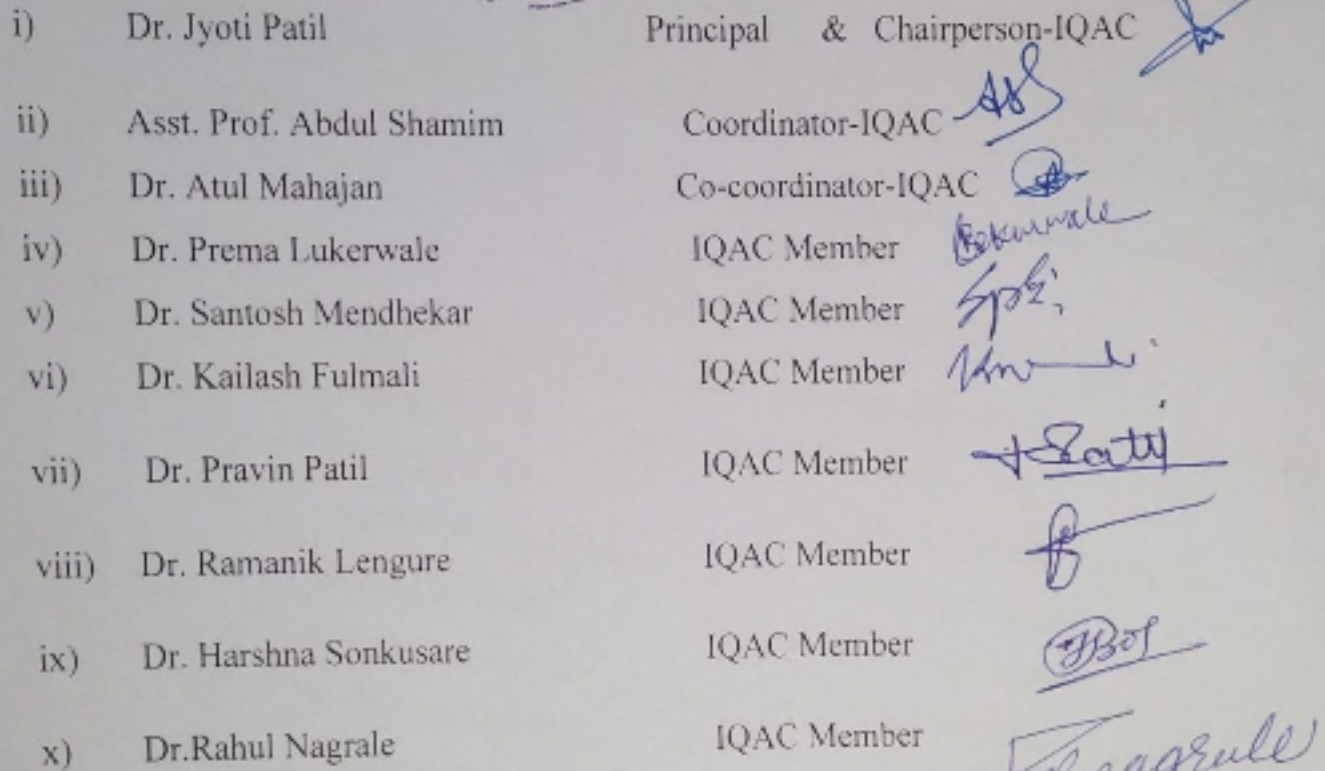 i) Dr. Jyoti Patil Principal & Chairperson-IQAC
ii) Asst. Prof. Abdul Shamim Coordinator-IQAC
iii) Dr. Atul Mahajan Co-coordinator-IQAC
iv) Dr. Prema Lukerwale IQAC Member
v) Dr. Santosh Mendhekar IQAC Member
vi) Dr. Kailash Fulmali IQAC Member
vii) Dr. Pravin Patil IQAC Member
viii) Dr. Ramanik Lengure IQAC Member
ix) Dr. Harshna Sonkusare IQAC Member
x) Dr.Rahul Nagrale IQAC Member